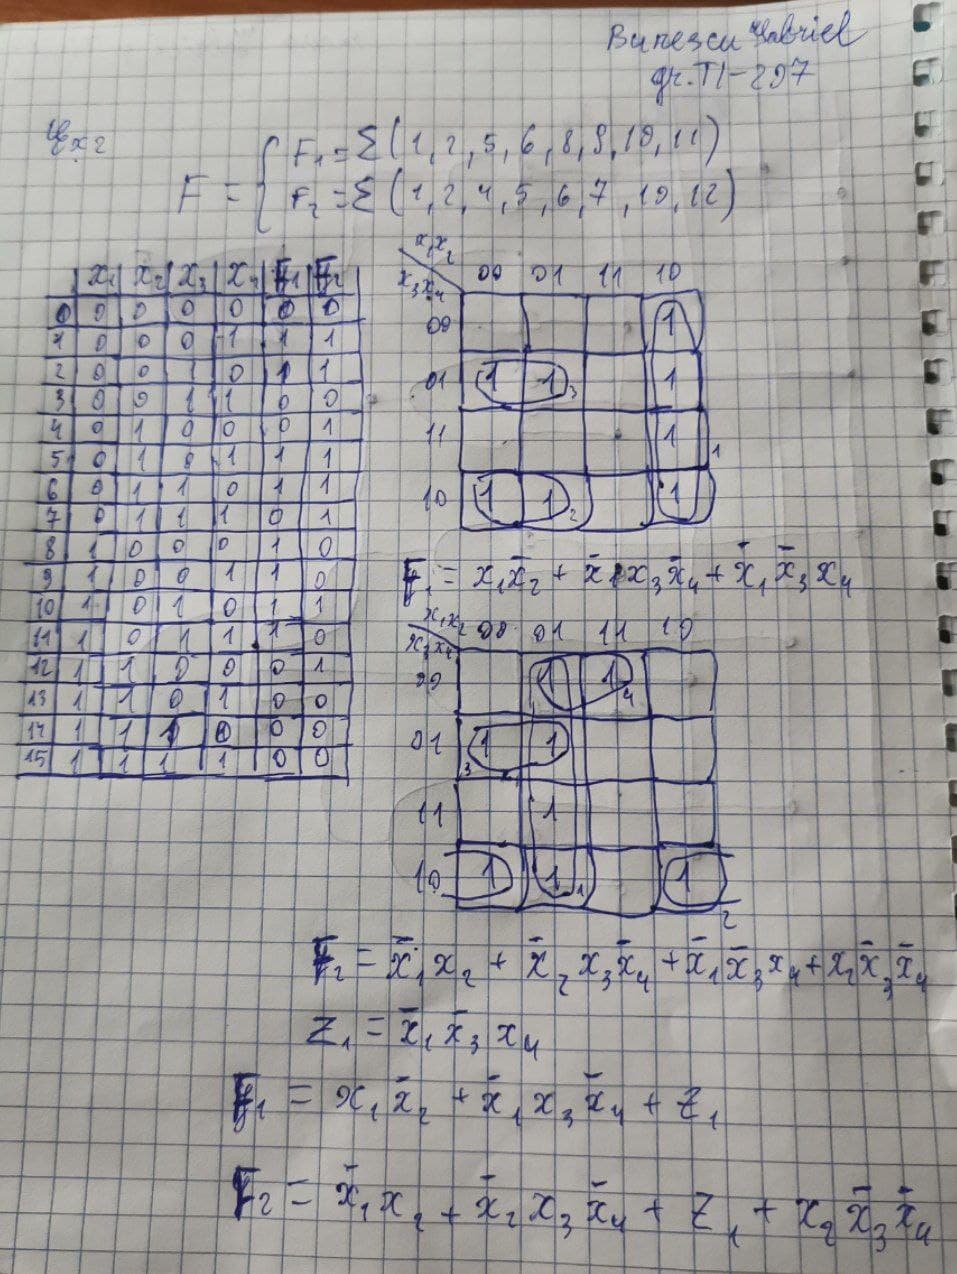 Bunescu Gabriel
gr. TI-207
Ex 2
F = { F₁ = Σ(1, 2, 5, 6, 8, 9, 10, 11)
F₂ = Σ(1, 2, 4, 5, 6, 7, 10, 12)
x₁ x₂ x₃ x₄ F₁ F₂
0 0 0 0 0 0 0
1 0 0 0 1 1 1
2 0 0 1 0 1 1
3 0 0 1 1 0 0
4 0 1 0 0 0 1
5 0 1 0 1 1 1
6 0 1 1 0 1 1
7 0 1 1 1 0 1
8 1 0 0 0 1 0
9 1 0 0 1 1 0
10 1 0 1 0 1 1
11 1 0 1 1 1 0
12 1 1 0 0 0 1
13 1 1 0 1 0 0
14 1 1 1 0 0 0
15 1 1 1 1 0 0
x₁x₂
x₃x₄ 00 01 11 10
00 1
01 1 1 3 1
11 1 1
10 1 1 2 1
F₁ = x₁x̄₂ + x̄₁x₃x̄₄ + x̄₁x̄₃x₄
x₁x₂
x₃x₄ 00 01 11 10
00 1 1 4
01 1 1 3
11 1
10 1 1 1 1 2
F₂ = x̄₁x₂ + x̄₂x₃x̄₄ + x̄₁x̄₃x₄ + x₂x̄₃x̄₄
Z₁ = x̄₁x̄₃x₄
F₁ = x₁x̄₂ + x̄₁x₃x̄₄ + Z₁
F₂ = x̄₁x₂ + x̄₂x₃x̄₄ + Z₁ + x₂x̄₃x̄₄